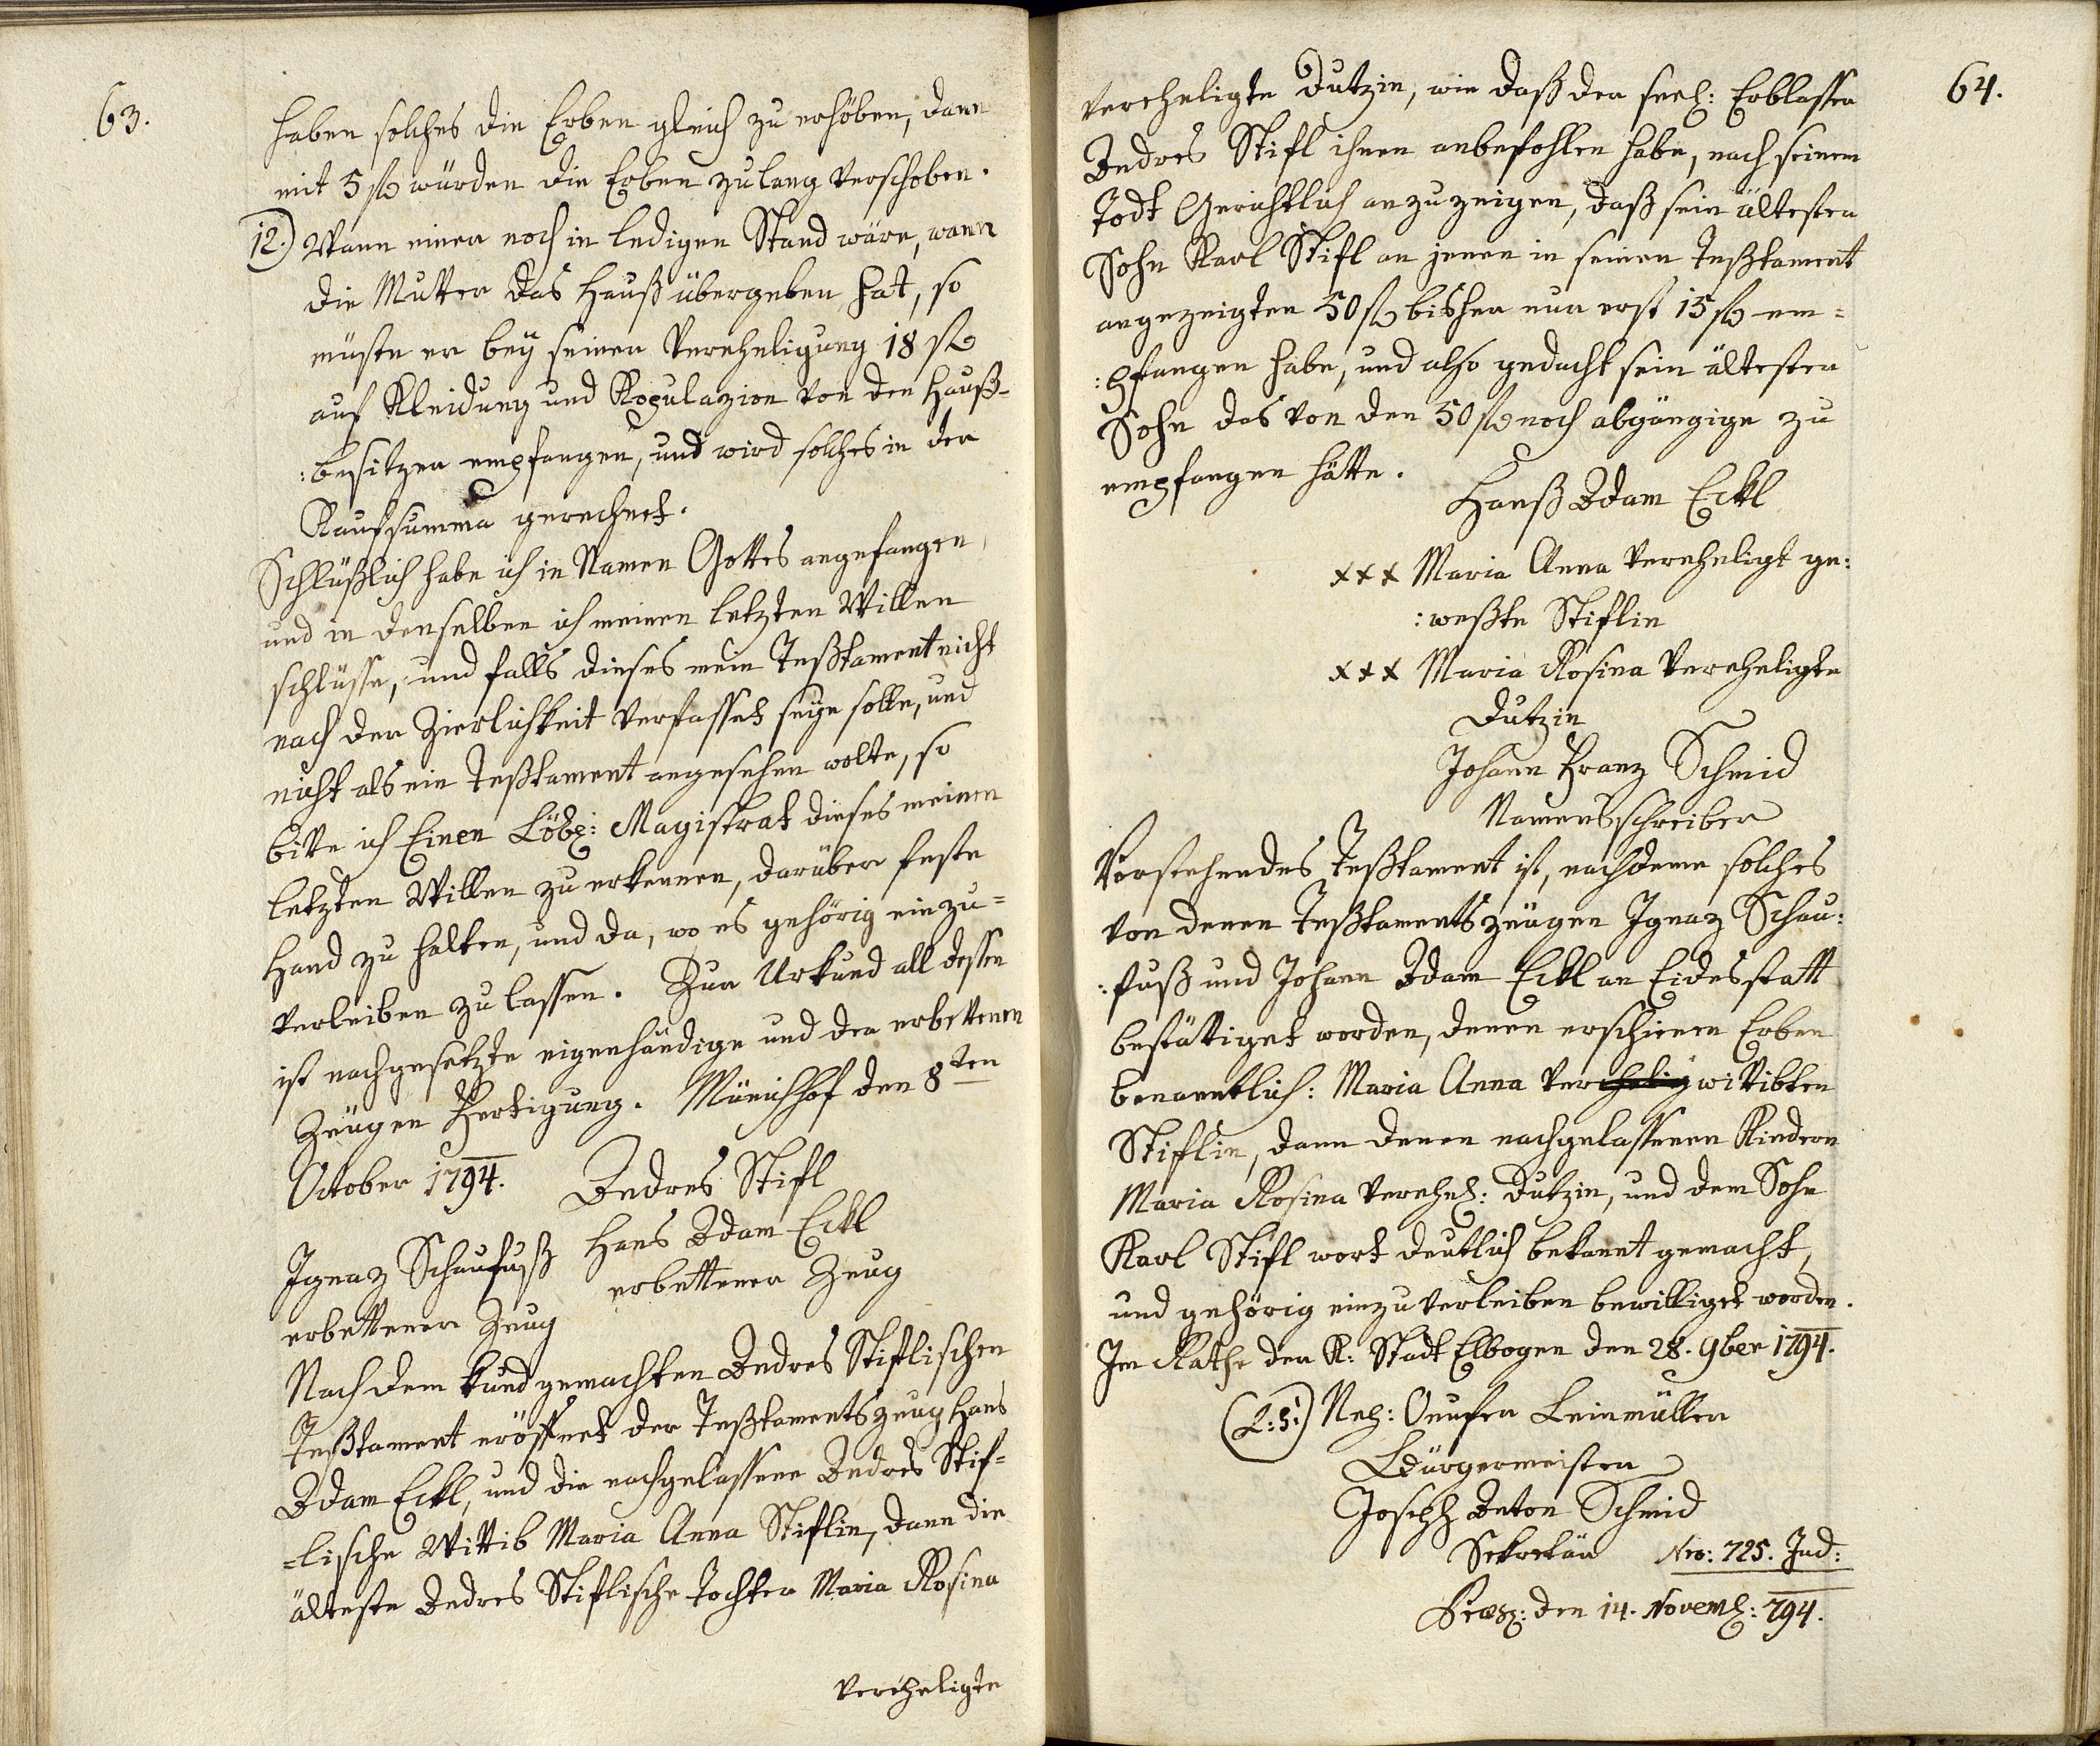 63.
haben solches die Erben gleich zu erhöben, dann
mit 5 fl würden die Erben zu lang verschoben.
12.) Wann einer noch in ledigen Stand wäre, wann
die Mutter das Hauß übergeben hat, so
müste er bey seiner Vereheligung 18 fl
auf Kleidung und Kopulazion von den Hauß-
:besitzer empfangen, und wird solches in der
Kaufsumma gerechnet.
Schlüßlich habe ich in Namen Gottes angefangen,
und in denselben ich meinen letzten Willen
schlüsse, und falls dieses mein Teßtament nicht
nach der Zierlichkeit verfasset seye solle, und
nicht als ein Teßtament angesehen wolte, so
bitte ich Einen Löbl: Magistrat dieses meinen
letzten Willen zu erkennen, darüber feste
Hand zu halten, und da, wo es gehörig einzu=
verleiben zu lassen. Zur Urkund all dessen
ist nachgesetzte eigenhändige und der erbettenen
Zeugen Fertigung. Münichhof den 8ten
October 1794. Andres Stifl
Ignaz Schaufuß Hans Adam Eckl
erbettener Zeug erbettener Zeug
Nach dem kund gemachten Andres Stiflischen
Teßtament eröffnet der Teßtamentszeug Hans
Adam Eckl, und die nachgelassene Andres Stif=
=lische Wittib Maria Anna Stiflin, dann die
älteste Andres Stiflische Tochter Maria Rosina
vereheligte
64.
vereheligte Dutzin, wie daß der seel: Erblasser
Andres Stifl ihnen anbefohlen habe, nach seinem
Todt Gerichtlich anzuzeigen, daß sein ältester
Sohn Karl Stifl an jenen in seinen Teßtament
angezeigten 50 fl bisher nur erst 15 fl em=
:pfangen habe, und also gedacht sein ältester
Sohn das von den 50 fl noch abgängige zu
empfangen hätte.
Hanß Adam Eckl
xxx Maria Anna vereheligt ge:
:weßte Stiflin
xxx Maria Rosina vereheligte
Dutzin
Johann Franz Schmid
Namensschreiber
Vorstehendes Teßtament ist, nachdeme solches
von denen Teßtamentszeugen Ignaz Schau:
:fuß und Johann Adam Eckl an Eidesstatt
bestättiget worden, denen erschienen Erben
benanntlich: Maria Anna verehelig wittibten
Stiflin, dann denen nachgelassenen Kindern
Maria Rosina verehel: Dutzin, und dem Sohn
Karl Stifl wort deutlich bekannt gemacht,
und gehörig einzuverleiben bewilliget worden.
Im Rathe der K: Stadt Elbogen den 28. 9ber 1794.
(L:S:) Nep: Onufer Leinmüller
Bürgermeister
Joseph Anton Schmid
Sekretär Nro: 725. Jud:
Præs: den 14. Novemb: 794.